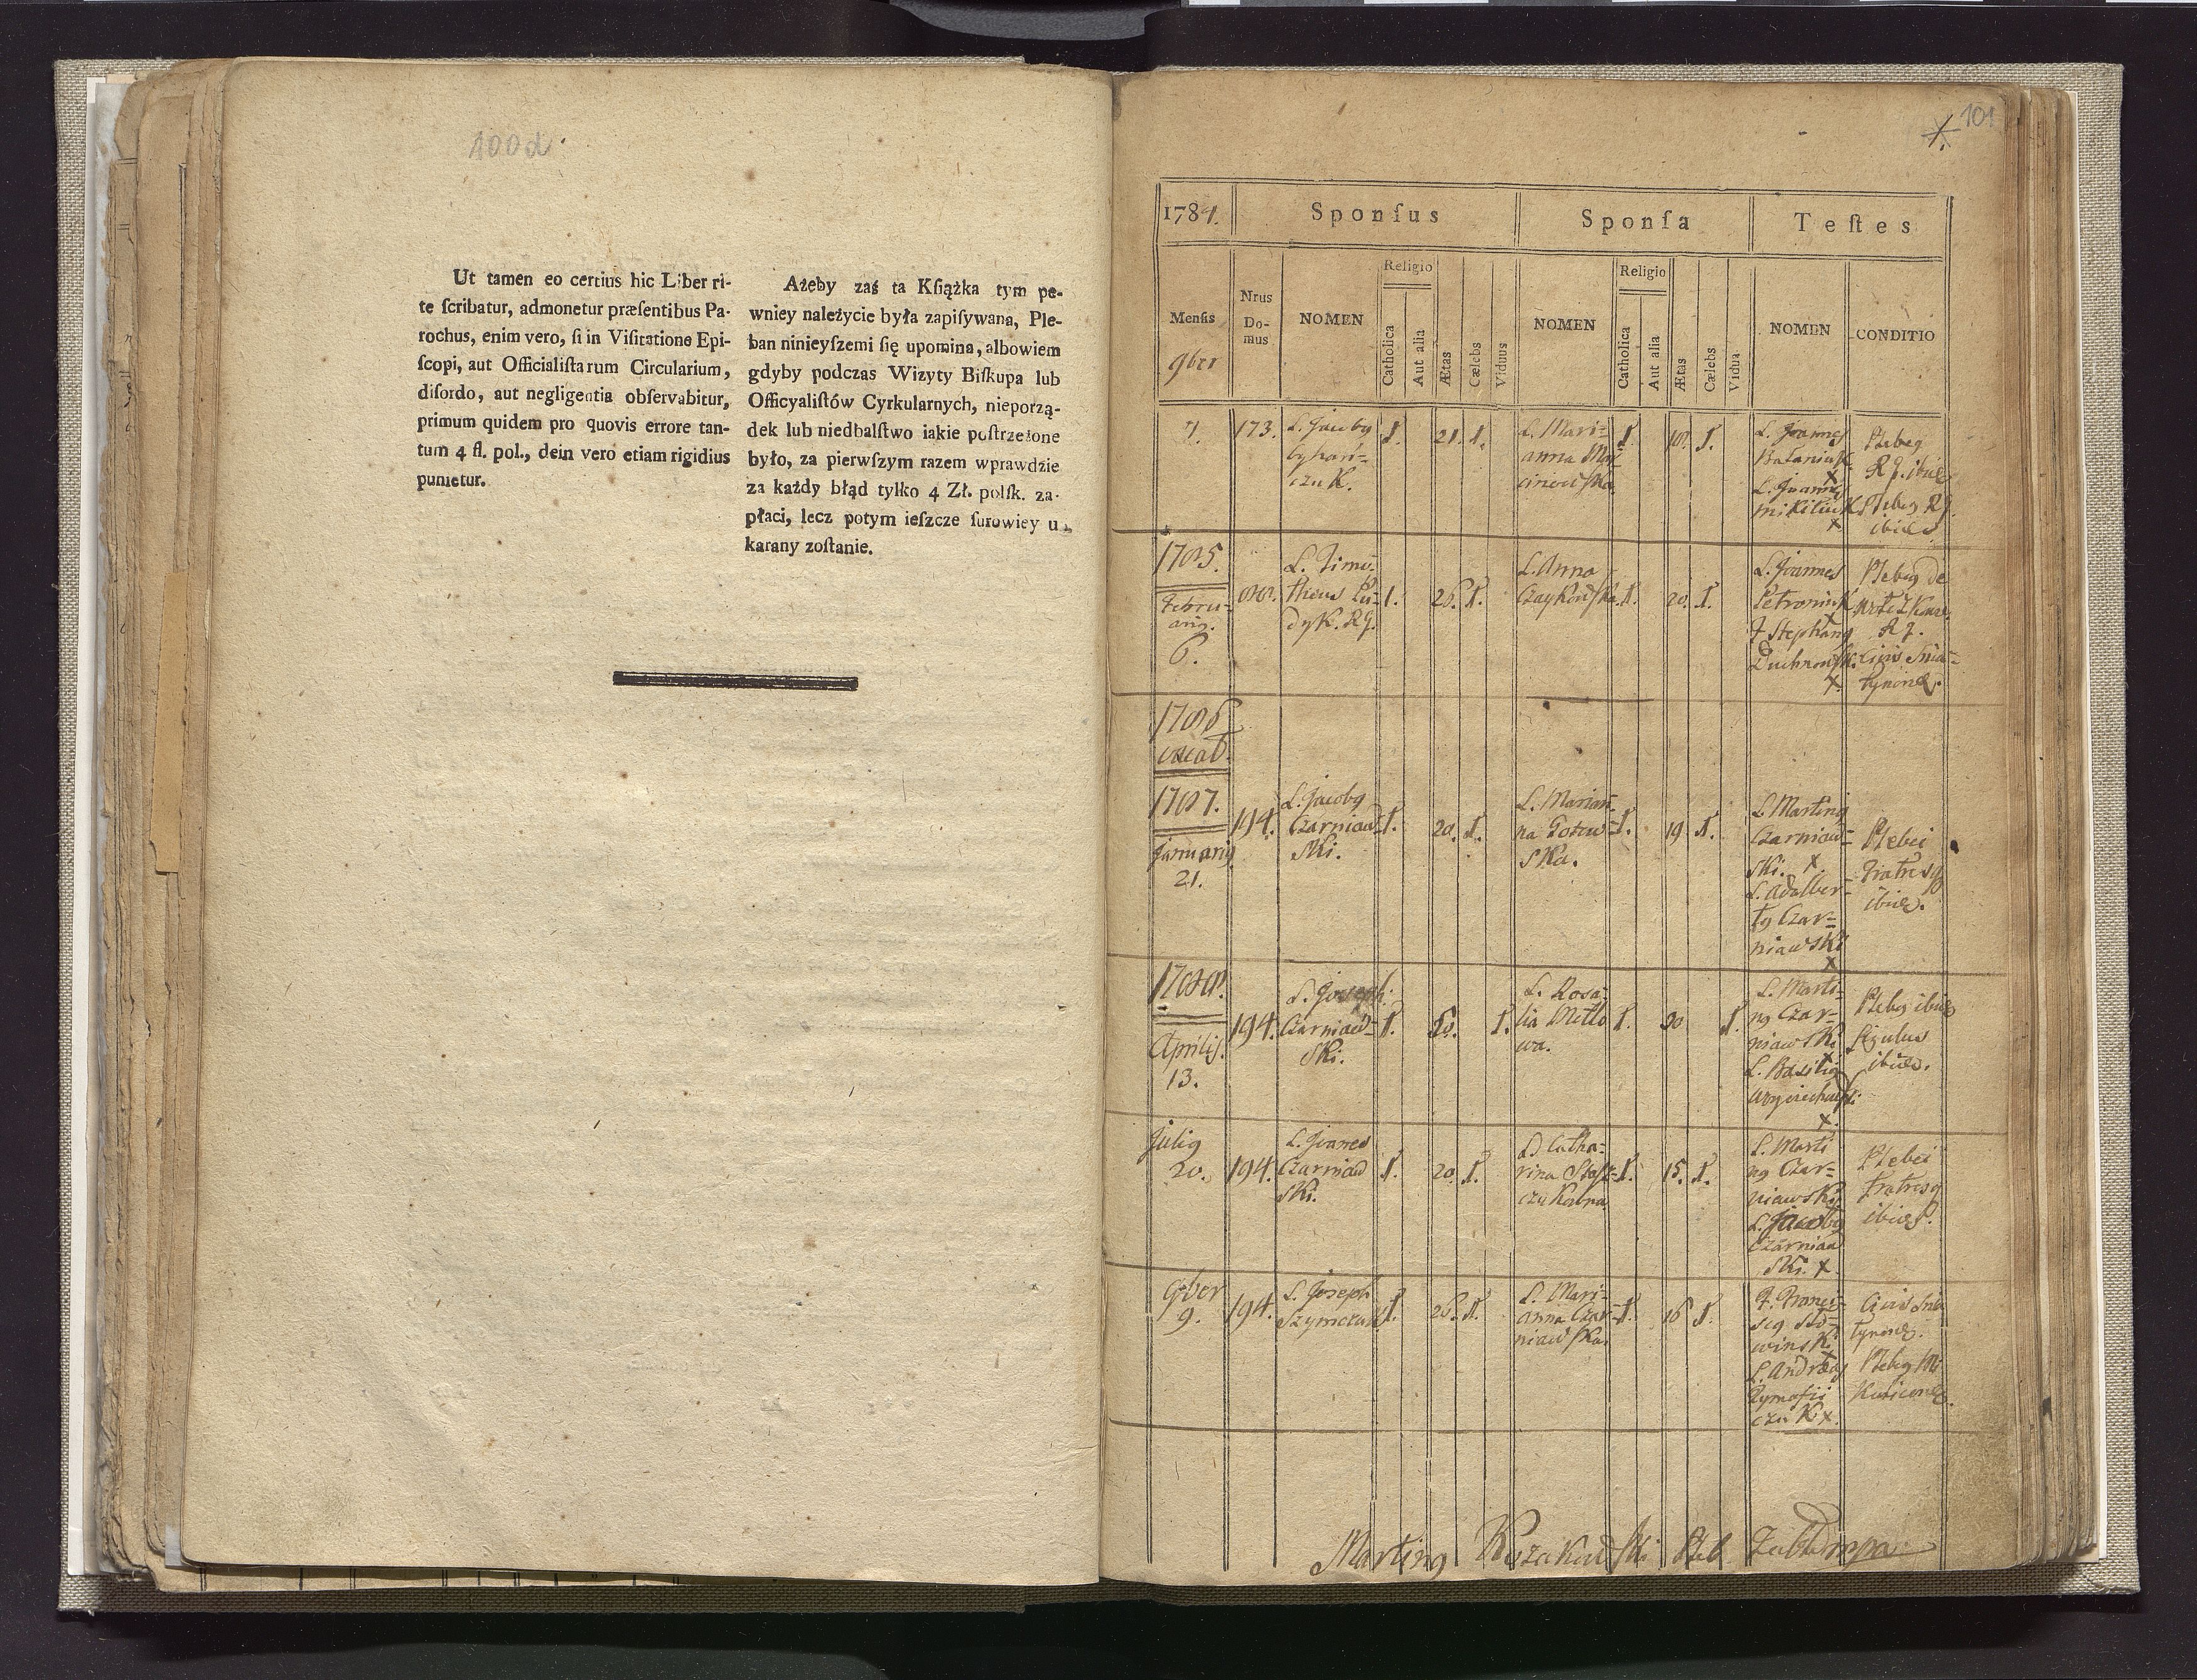 100d.
Ut tamen eo certius hic Liber ri-
te ſcribatur, admonetur præſentibus Pa-
rochus, enim vero, ſi in Viſitatione Epi-
ſcopi, aut Officialiſtarum Circularium,
diſordo, aut negligentia obſervabitur,
primum quidem pro quovis errore tan-
tum 4 fl. pol., dein vero etiam rigidius
punietur.
Ażeby zaś ta Kſiążka tym pe-
wniey należycie była zapiſywana, Ple-
ban ninieyſzemi ſię upomina, albowiem
gdyby podczas Wizyty Biſkupa lub
Officyaliſtów Cyrkularnych, nieporzą-
dek lub niedbalſtwo iakie poſtrzeżone
było, za pierwſzym razem wprawdzie
za każdy błąd tylko 4 Zł. polſk. za-
płaci, lecz potym ieſzcze ſurowiey u-
karany zoſtanie.
101
1784. Sponſus Sponſa Teſtes
Menſis
9ber
Nrus
Do-
mus
NOMEN
Religio
Catholica
Aut alia
Ætas
Cælebs
Viduus
NOMEN
Religio
Catholica
Aut alia
Ætas
Cælebs
Vidua
NOMEN
CONDITIO
7. 173.
1. 21. 1.
L. Mari=
anna
1. 1.
L. Joannes
L. Joannes
Plebeg
1785.
Febru=
arig.
6.
L. Timo=
theus
1. 26. 1.
L. Anna
Czaykowska
1. 20. 1.
L. Joannes
Petroniuk
Stephang
Plebeg de
Civis Snia=
tynens.
1786
vacat.
1787.
Januarig
21.
194.
L. Jacobg
Czarniaw=
ski.
1. 20. 1.
L. Marian=
na
ska.
1. 19 1.
L. Marting
Czarniaw=
ski. x
L. Adalber=
tg Czar=
niawski
x
Plebei
Fratresq
ibid.
1788.
Aprilis.
13.
194.
L. Joseph
Czarniaw=
ski.
1. 50. 1.
L. Rosa=
lia
wa.
1. 30 1.
L. Marti=
ng Czar=
niawski
x
L. Basilig
x.
Plebeg ibid
Figulus
ibid.
Julig
20.
194.
L. Joanes
Czarniaw
ski.
1. 20. 1.
Catha=
rina
1. 15. 1.
L. Marti
ng Czar=
niawski
L. Jacobg
Czarniaw
ski. x
Plebei
Fratresq
ibid.
9ber
9.
194.
L. Joseph
Szymczuk
1. 26. 1.
L. Mari=
anna Czar=
niawska.
1. 16 1.
F. Franci=
scg
winski
x
L. Andreas
czuk x.
Civis Snia
tynens.
Plebeg
Marting